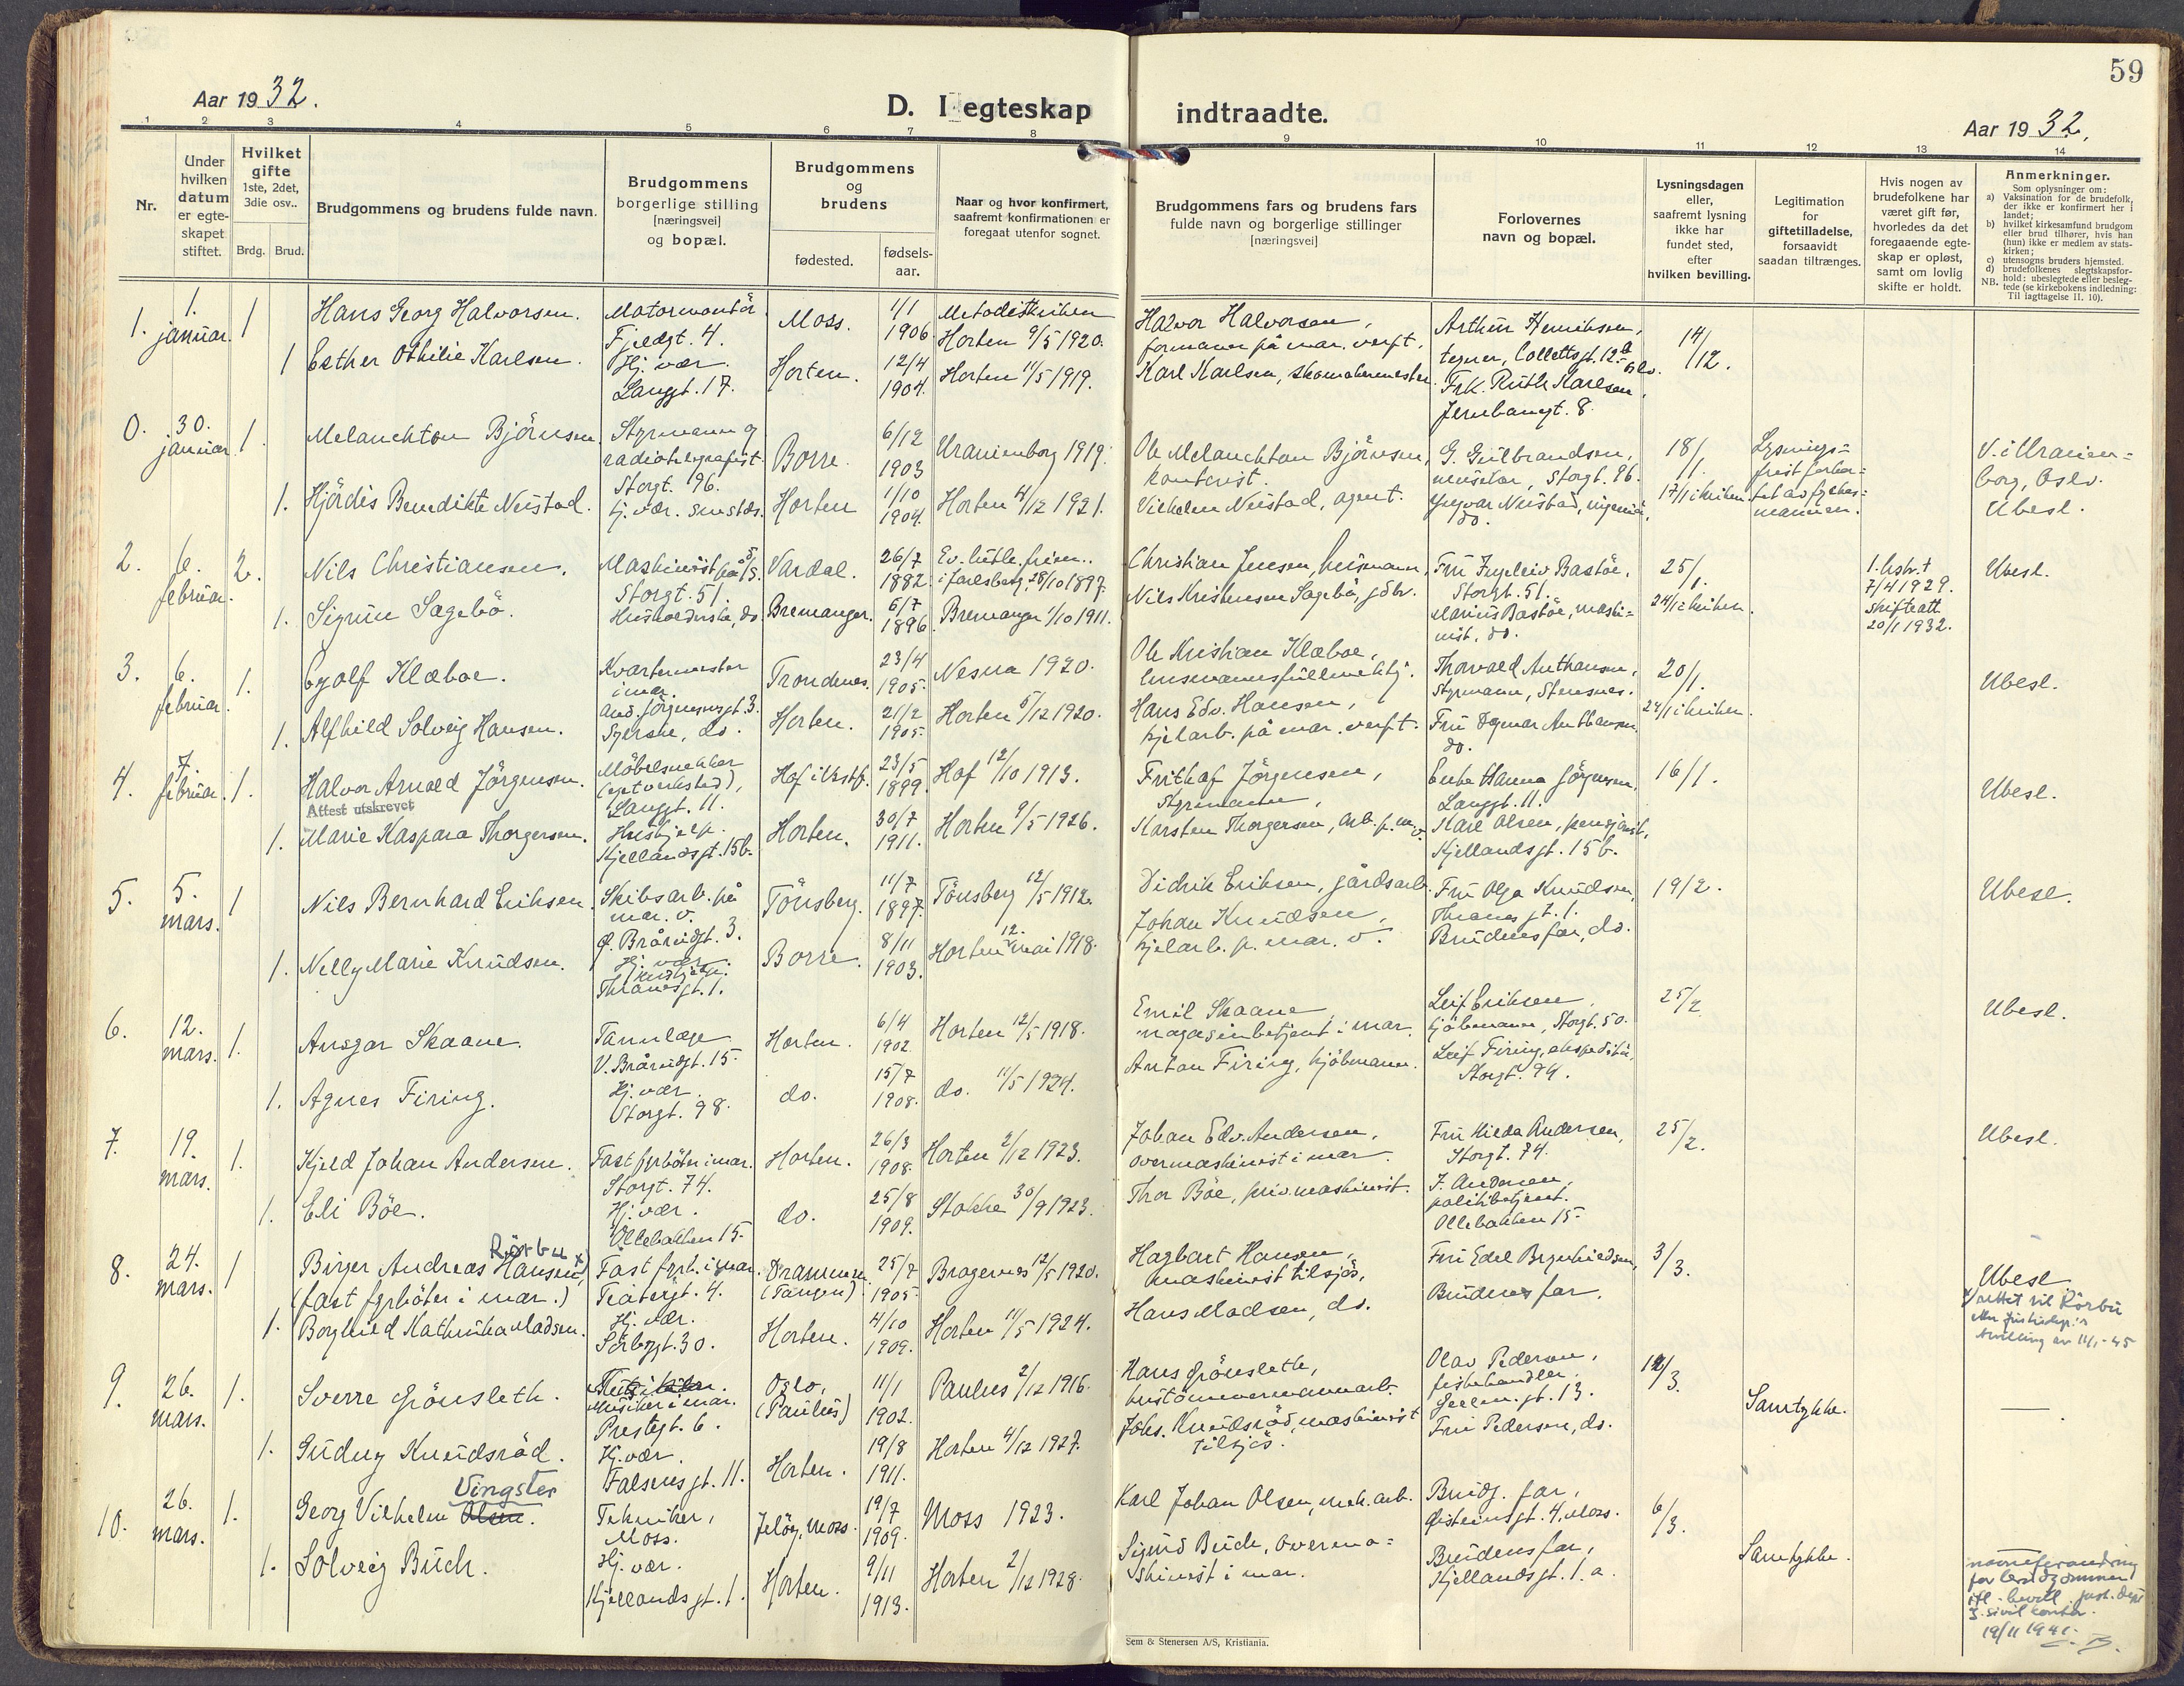 59
Aar 1932.
D. I egteskap indtraadte.
Aar 1932.
1 2 3 4 5 6 7 8 9 10 11 12 13 14
Nr.
Under hvilken datum er egte-skapet stiftet.
Hvilket gifte 1ste, 2det, 3die osv..
Brdg. Brud.
Brudgommens og brudens fulde navn.
Brudgommens borgerlige stilling [næringsvei] og bopæl.
Brudgommens og brudens
fødested.
fødsels-aar.
Naar og hvor konfirmert, saafremt konfirmationen er foregaat utenfor sognet.
Brudgommens fars og brudens fars fulde navn og borgerlige stillinger [næringsvei]
Forlovernes navn og bopæl.
Lysningsdagen eller, saafremt lysning ikke har fundet sted, efter hvilken bevilling.
Legitimation for giftetilladelse, forsaavidt saadan tiltrænges.
Hvis nogen av brudefolkene har været gift før, hvorledes da det foregaaende egte-skap er opløst, samt om lovlig skifte er holdt.
Anmerkninger.
Som oplysninger om:
a) Vaksination for de brudefolk, der ikke er konfirmert her i landet;
b) hvilket kirkesamfund brudgom eller brud tilhører, hvis han (hun) ikke er medlem av stats-kirken;
c) utensogns bruders hjemsted.
d) brudefolkenes slegtskapsfor-hold: ubeslegtede eller besleg-
NB. tede (se kirkebokens indledning: Til iagttagelse II. 10).
1. 1. januar. 1 Hans Georg Halvorsen. Motormontör Fjeldgt. 4. Moss. 1/1 1906 Metodistkirken Horten 9/5 1920. Halvor Halvorsen, formann på mar. verft. Arthur Henriksen, tegner, Collettsgt. 12 Oslo. 14/12.
1 Esther Othilie Karlsen. Hj. vær. Langgt. 17. Horten. 12/4 1904. Horten 11/5 1919. Karl Karlsen, skomakermester. Frk. Ruth Karlsen, Jernbanegt. 8.
0. 30. januar 1. Melanchton Björnsen. Styrmann og radiotelegrafist. Storgt. 96. Borre. 6/12 1903 Uranienborg 1919. Ole Melanchton Björnsen, kontorist. G. Gulbrandsen, musiker, Storgt. 96. 18/1. Lysnings= frist forkor= tet av fylkes= mannen. V. i Uranien= borg, Oslo. Ubesl.
1. Hjördis Benedikte Neustad. hj. vær. smstds. Horten 1/10 1904. Horten 4/12 1921. Vilhelm Neustad, agent. Yngvar Neustad, ingeniör, do. 17/1 i kirken
2. 6. februar. 2. Nils Christiansen. Maskinist på d/s. Storgt. 51. Vardal. 26/7 1882. Ev. luth. frikm.. i Jarlsberg, 28/10 1897. Christian Jensen, husmann. Fru Ingeleiv Bastöe, Storgt. 51. 25/1. 1. hstr. † 7/4 1929. skifteatt. 20/1 1932. Ubesl.
1. Sigrun Sagebö. Husholderske, do. Bremanger. 6/7 1896. Bremanger 1/10 1911. Nils Kristensen Sagebö, gdbr. Marius Bastöe, maski= nist, do. 24/1 i kirken.
3. 6. februar 1. Eyolf Klæboe. Kvartermester i mar. And. Jörgensensgt. 3. Trondenes. 23/4 1905. Nesna 1920. Ole Kristian Klæboe, lensmannsfullmektig. Thorvald Anthonsen, Styrmann, Stensnes. 20/1. Ubesl.
1. Alfhild Solveig Hansen. Syerske, do. Horten. 21/2 1905. Horten 5/12 1920. Hans Edv. Hansen, kjelarb. på mar. verft. Fru Dagmar Anthonsen do. 24/1 i kirken.
4. 7 februar. 1. Halvor Arnold Jörgensen. Attest utskrevet Möbelsnekker (eget verksted), Langgt. 11. Hof i Vestf. 23/5 1899. Hof 12/10 1913. Frithof Jörgensen, Styrmann, Enke Hanna Jörgensen, Langgt. 11. 16/1. Ubesl.
1. Marie Kaspara Thorgersen. Hushjelp. Kjellandsgt. 15b. Horten. 30/7 1911. Horten 9/5 1926. Karsten Thorgersen, arb. p. m. v. Karl Olsen, pensjonist, Kjellandsgt. 15 b.
5. 5. mars. 1 Nils Bernhard Eriksen. Skibsarb. på mar. v. Ø. Brårudgt. 3. Tönsberg. 11/7 1897. Tönsberg 12/5 1912. Didrik Eriksen, gårdsarb. Fru Olga Knudsen, Thranesgt. 1. 19/2. Ubesl.
1. Nelly Marie Knudsen. Hj. vær. hushjelp. Thranesgt. 1. Borre. 8/11 1903. Horten 12. mai 1918. Johan Knudsen, kjelarb. p. mar. v. Brudens far, do.
6. 12. mars. 1. Ansgar Skaane. Tannlæge V. Brårudgt. 15. Horten. 6/4 1902. Horten 12/5 1918. Emil Skaane, magasinbetjent i mar. Leif Eriksen, kjöbmann, Storgt. 50. 25/2 Ubesl.
1. Agnes Firing. Hj. vær. Storgt. 98. do. 15/7 1908. do. 11/5 1924. Anton Firing, kjöbmann. Leif Firing, ekspeditör, Storgt. 94.
7. 19. mars. 1. Kjeld Johan Andersen. Fast fyrböter i mar. Storgt. 74. Horten. 26/3 1908. Horten 2/12 1923. Johan Edv. Andersen, overmaskinist i mar. Fru Hilda Andersen, Storgt. 74. 25/2. Ubesl.
1. Eli Böe. Hj. vær. Ollebakken 15. do. 25/8 1909. Stokke 30/9 1923. Thor Böe, priv. maskinist. J. Andersen, politibetjent. Ollebakken 15.
8. 24. mars. 1 Birger Andreas Hansen, Rörbu x) (fast fyrböter i mar.) Fast fyrb. i mar. Teatergt. 4. Drammen (Tangen). 25/7 1905. Bragernes 12/5 1920. Hagbart Hansen, maskinist tilsjös, Fru Edel Brynhildsen, 3/3. Ubesl. x) rettet til Rörbu
1. Borghild Kathinka Madsen. Hj. vær. Sörbygt. 30. Horten. 4/10 1909. Horten 11/5 1924. Hans Madsen, do. Brudens far.
9. 26. mars. 1. Sverre Grönsleth. Musiker i mar. Prestegt. 6. Oslo, (Paulus) 11/1 1902. Paulus 2/12 1916. Hans Grönsleth, Olav Pedersen, fiskehandler, 13. 12/3. Samtykke. —
1. Gudny Knudsröd. Hj. vær. Falsensgt. 11. Horten. 19/8 1911. Horten 4/12 1927. Johs. Knudsröd, maskinist tilsjös. Fru Pedersen, do.
10. 26. mars. 1. Georg Vilhelm Olsen. Vingster Tekniker, Moss. Jelöy, Moss. 19/7 1909. Moss 1923. Karl Johan Olsen, mek. arb. Brudg. far, Øisteinsgt. 4, Moss. 6/3. Samtykke. navneforandring for brudgommen ifl. bevill. just. dept 3. sivil kontor. 19/11 1941.
1. Solveig Buch. Hj. vær. Kjellandsgt. 1. Horten. 9/11 1913. Horten 2/12 1928. Sigurd Buch, overma= skinist i mar. Brudens far, Kjellandsgt. 1. a.
Sem & Stenersen A/S, Kristiania.